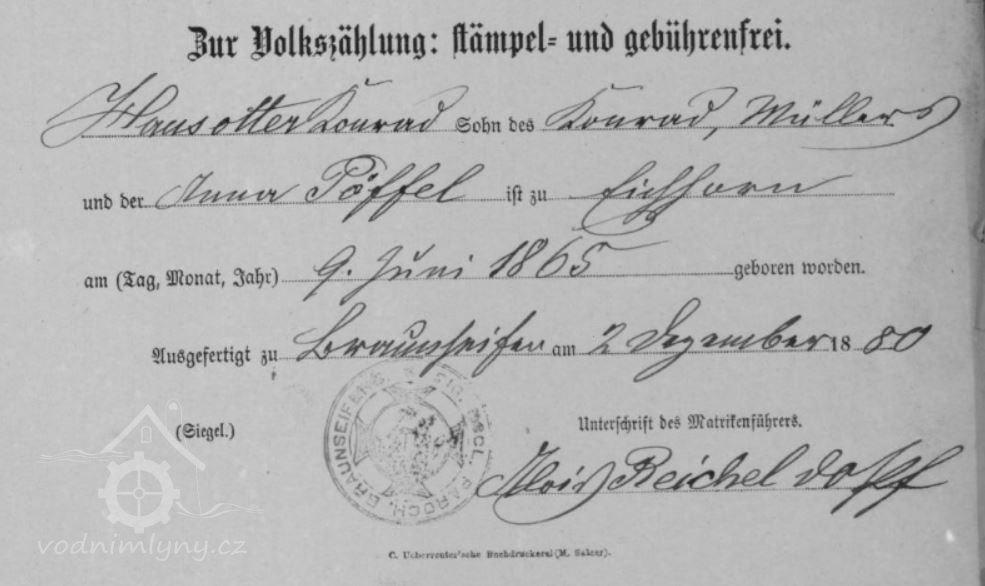 Zur Volkszählung: stämpel- und gebührenfrei.
Hausotter Konrad Sohn des Konrad, Müllers
und der Anna Pöffel ist zu Eichhorn
am (Tag, Monat, Jahr) 9. Juni 1865 geboren worden.
Ausgefertigt zu Braunseifen am 2 Dezember 1880
(Siegel.)
Unterschrift des Matrikenführers.
BRAUNSEIFEN SIG. PAROCH.
Alois Reichel
vodnimlyny.cz
C. Ueberreuter'sche Buchdruckerei (M. Salzer).